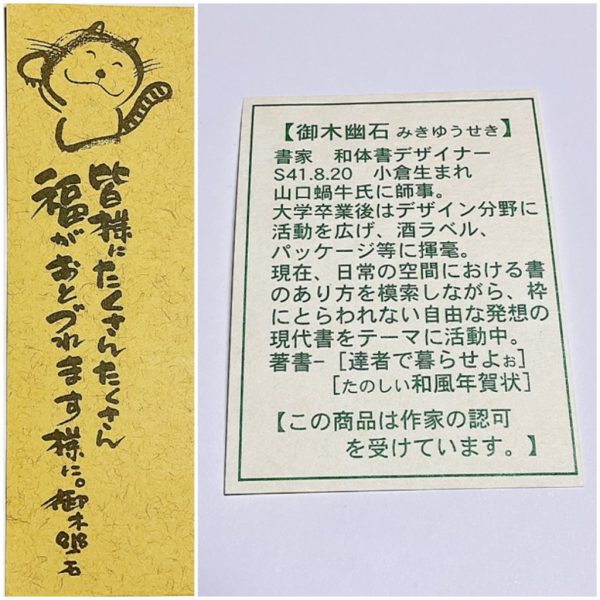 皆様にたくさんたくさん
福がおとづれます様に。御木幽石
【御木幽石 みきゆうせき】
書家　和体書デザイナー
S41.8.20　小倉生まれ
山口蝸牛氏に師事。
大学卒業後はデザイン分野に
活動を広げ、酒ラベル、
パッケージ等に揮毫。
現在、日常の空間における書
のあり方を模索しながら、枠
にとらわれない自由な発想の
現代書をテーマに活動中。
著書-［達者で暮らせよぉ］
［たのしい和風年賀状］
【この商品は作家の認可
を受けています。】